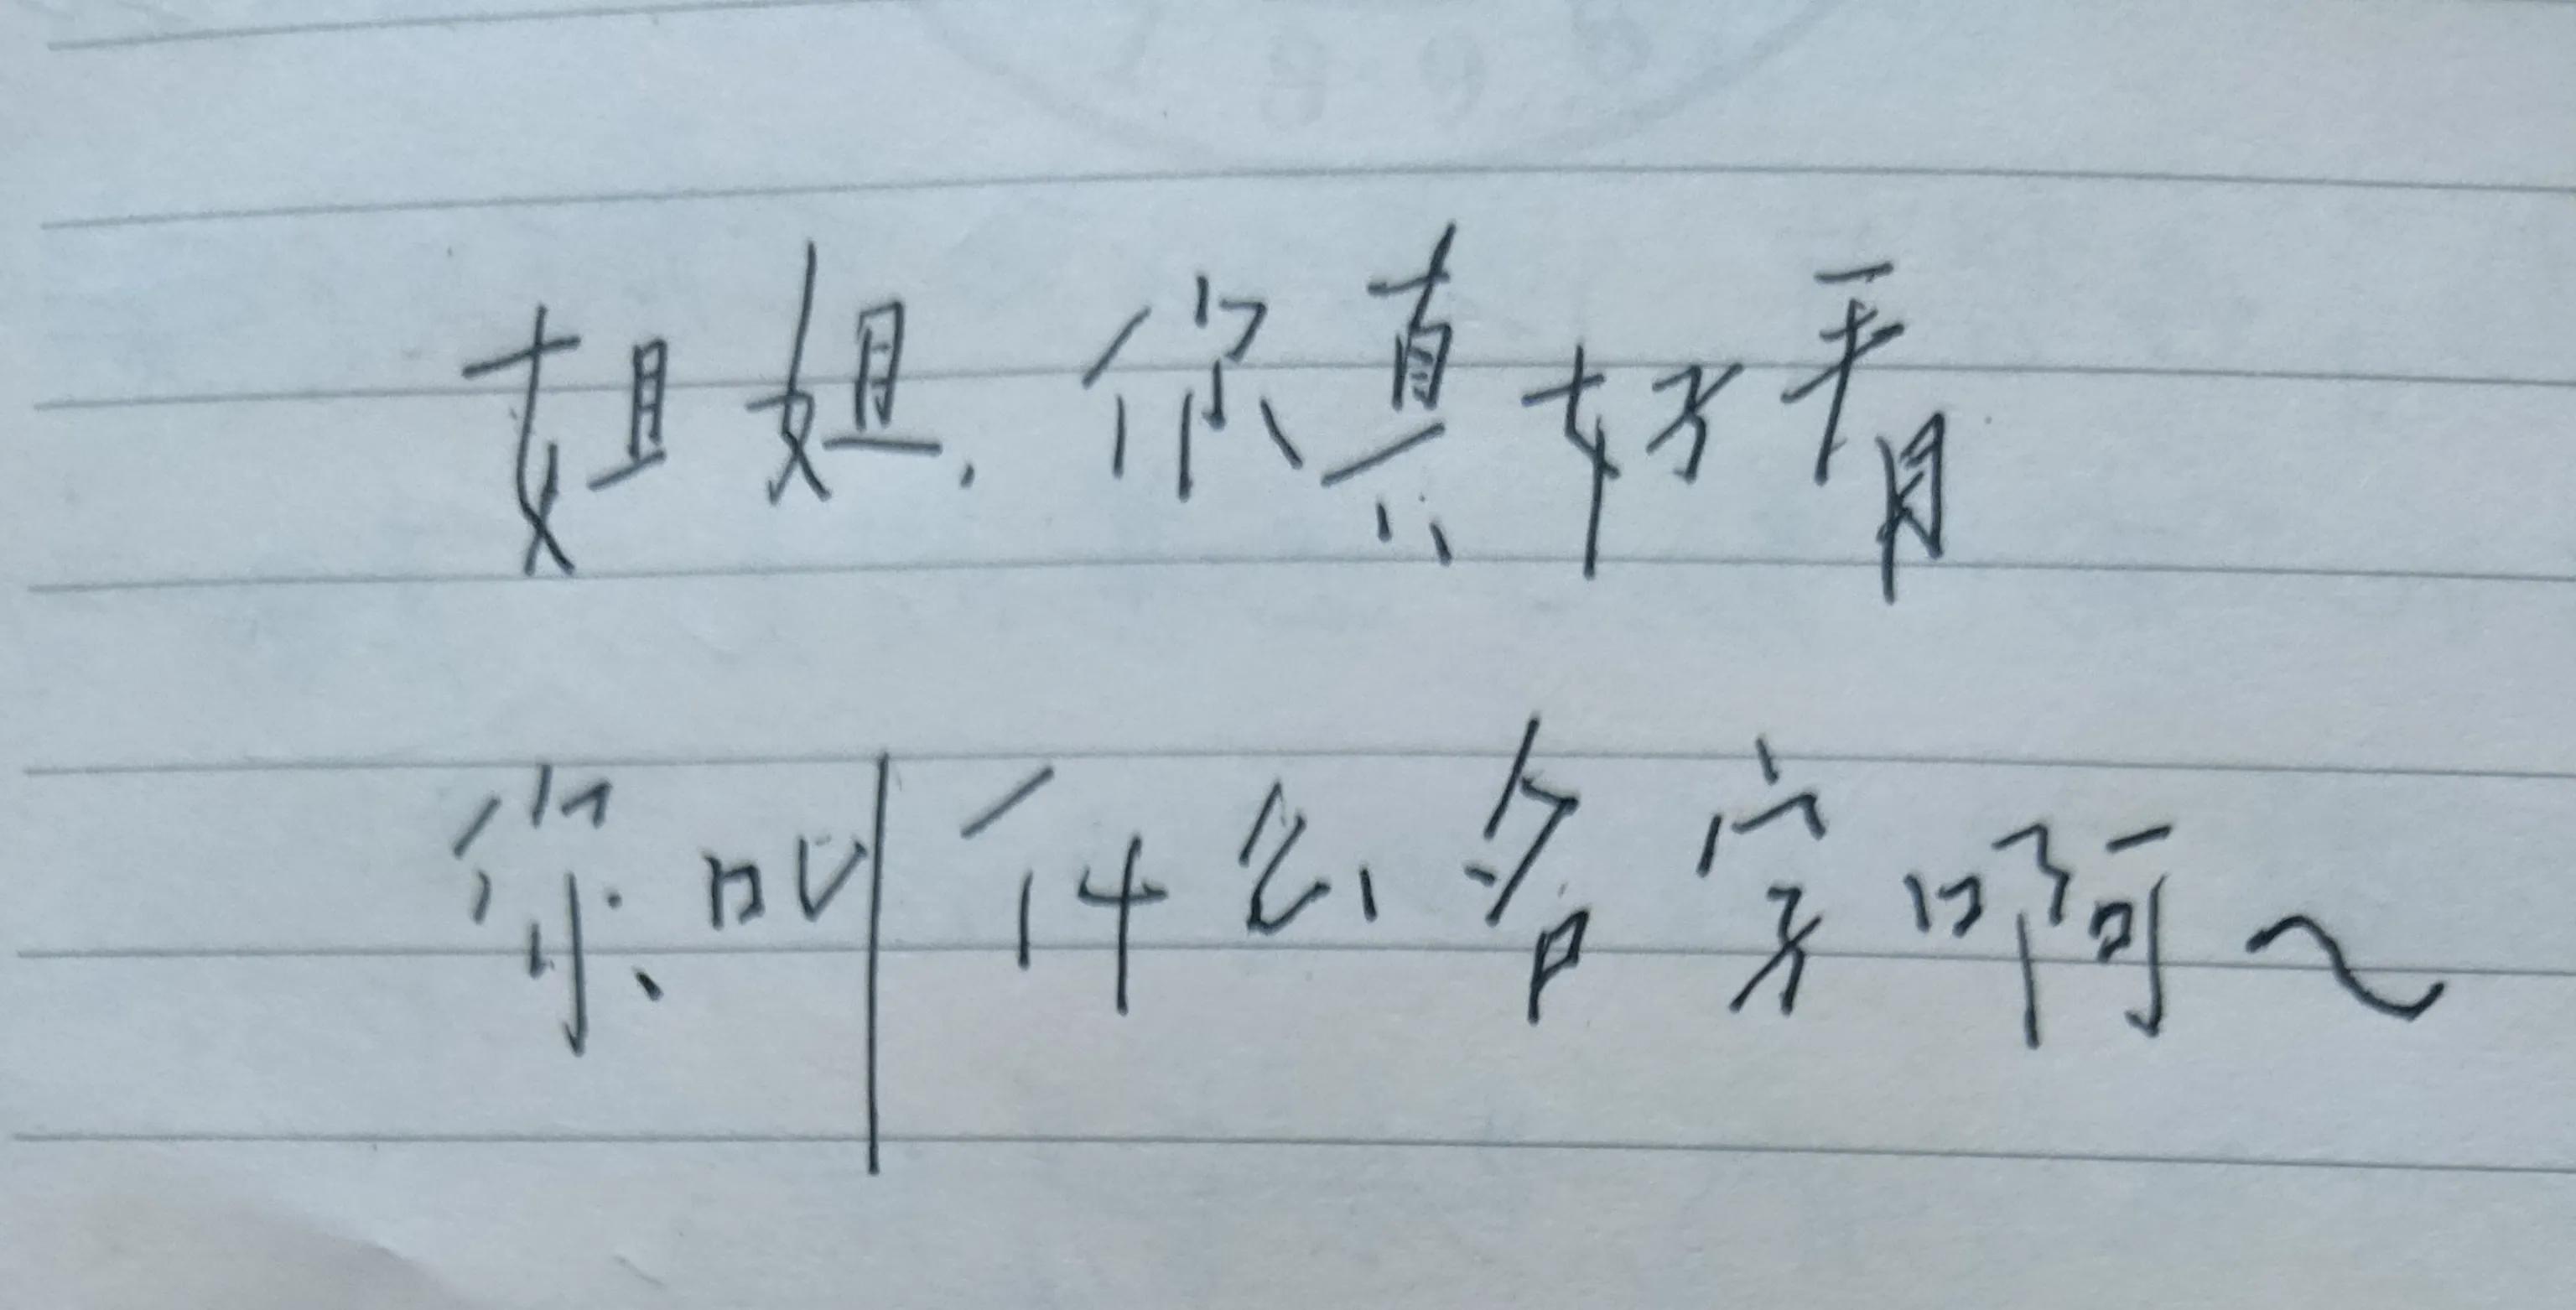 姐姐，你真好看
你叫什么名字啊～